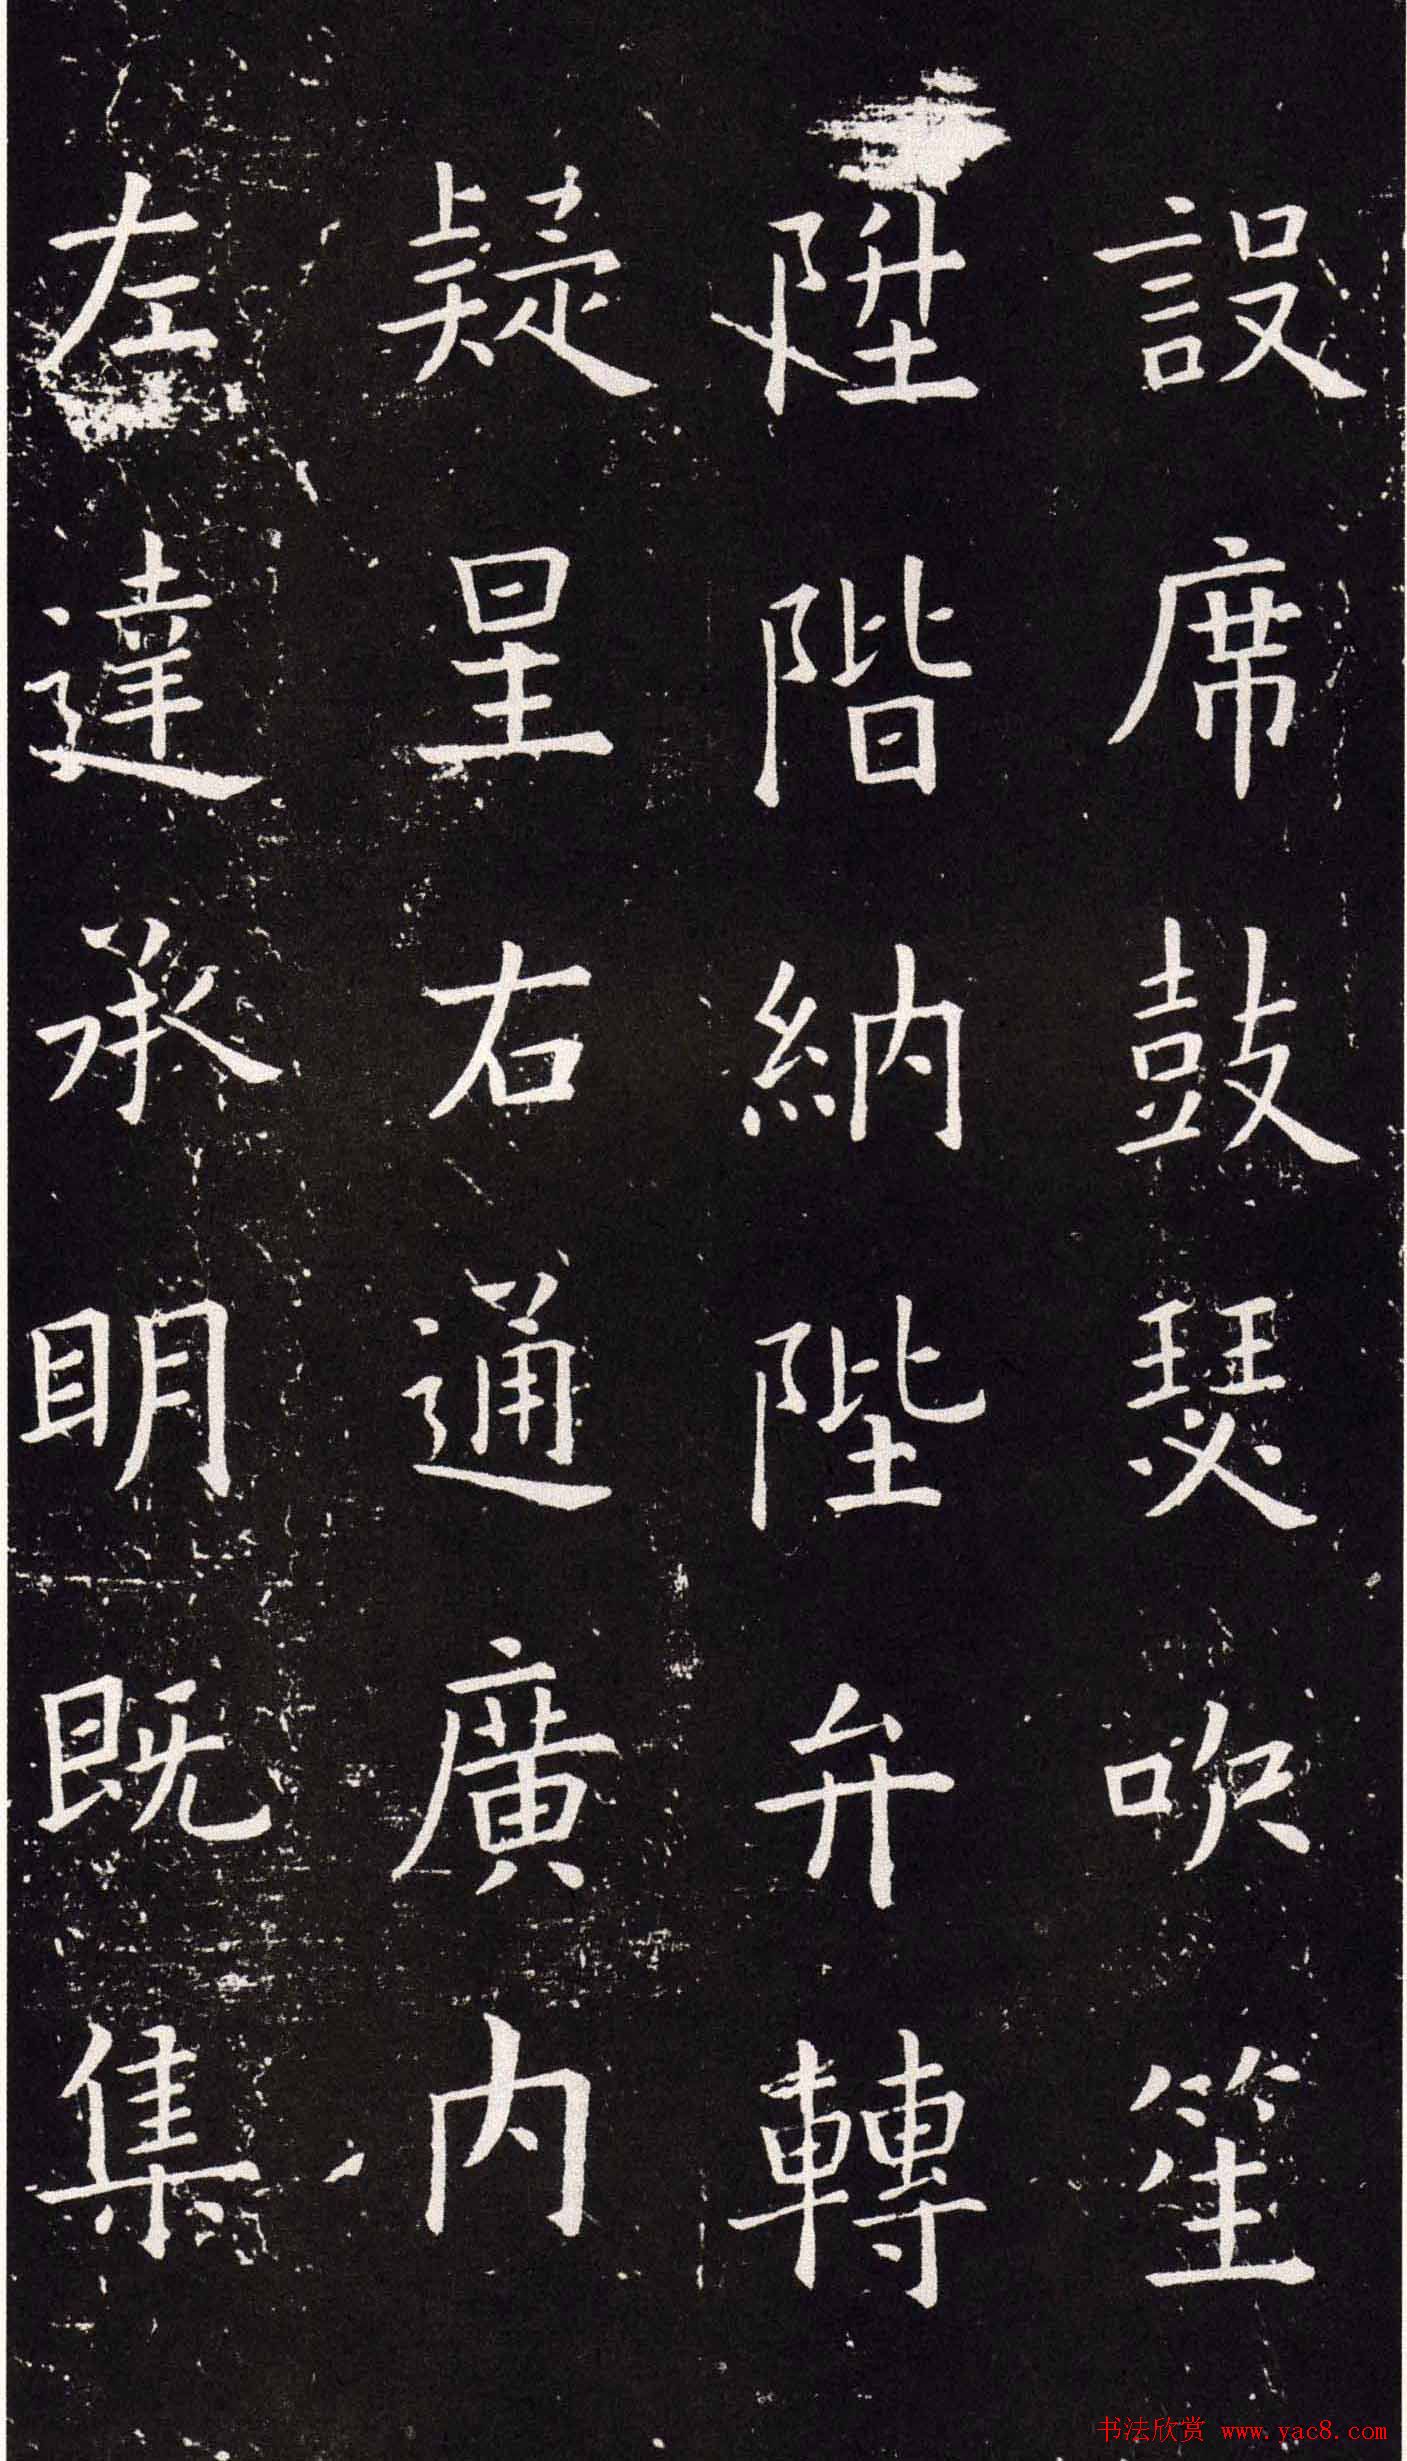 設席鼓瑟吹笙
陞階納陛弁轉
疑星右通廣内
左達承明既集
书法欣赏 www.yac8.com